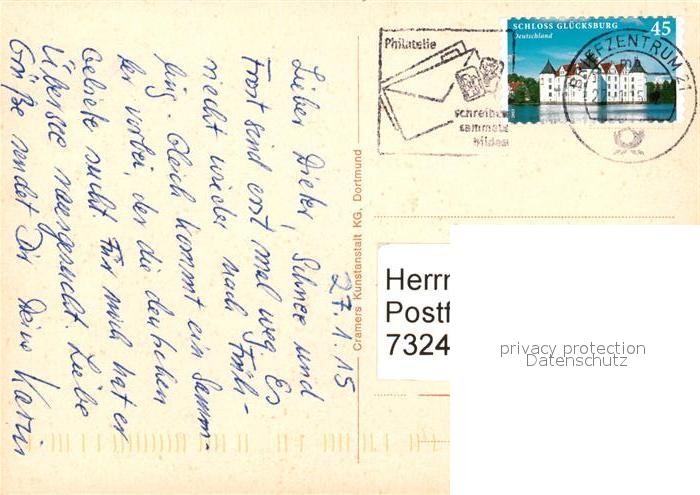 27.1.15
Lieber Dieter, Schnee und
Frost sind erst mal weg. Es
riecht wieder nach Früh-
ling. Gleich kommt ein Samm-
ler vorbei, der die deutschen
Gebiete sucht. Für mich hat er
Übersee rausgesucht. Liebe
Grüße sendet Dir Deine Karin
Cramers Kunstanstalt KG, Dortmund
Philatelie
schreiben
sammeln
bilden
SCHLOSS GLÜCKSBURG
Deutschland
45
BRIEFZENTRUM 21
Herrn
Postf
7324
privacy protection
Datenschutz